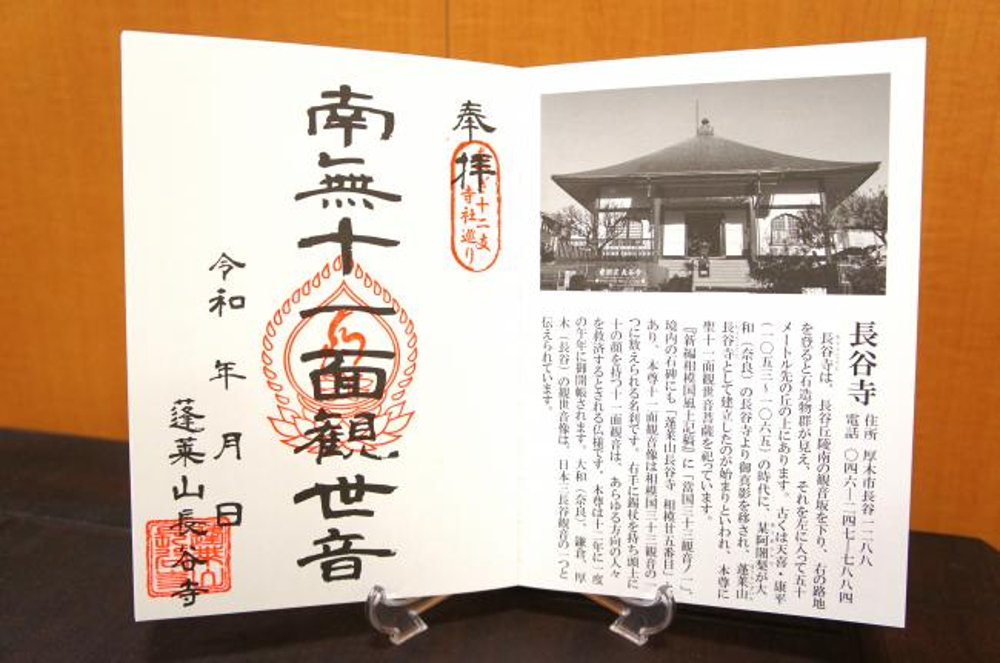 長谷寺
住所 厚木市長谷一二八八
電話 〇四六―二四七―七八八四
長谷寺は、長谷丘陵南の観音坂を下り、右の路地
を登ると石造物群が見え、それを左に入って五十
メートル先の丘の上にあります。古くは天喜・康平
(一〇五三～一〇六五)の時代に、某阿闍梨が大
和(奈良)の長谷寺より御真影を移され、蓬莱山
長谷寺として建立したのが始まりといわれ、本尊に
聖十一面観世音菩薩を祀っています。
『新編相模国風土記稿』に「當国三十三観音ノ一」、
境内の石碑にも「蓬莱山長谷寺 相模廿五番目」と
あり、本尊十一面観音像は相模国三十三観音の一
つに数えられる名刹です。右手に錫杖を持ち頭上に
十の顔を持つ十一面観音は、あらゆる方向の人々
を救済するとされる仏様です。本尊は十二年に一度
の午年に御開帳されます。大和(奈良)、鎌倉、厚
木(長谷)の観世音像は、日本三長谷観音の一つと
伝えられています。
奉拝
十二支
寺社巡り
南無十一面観世音
令和 年 月 日
蓬莱山長谷寺